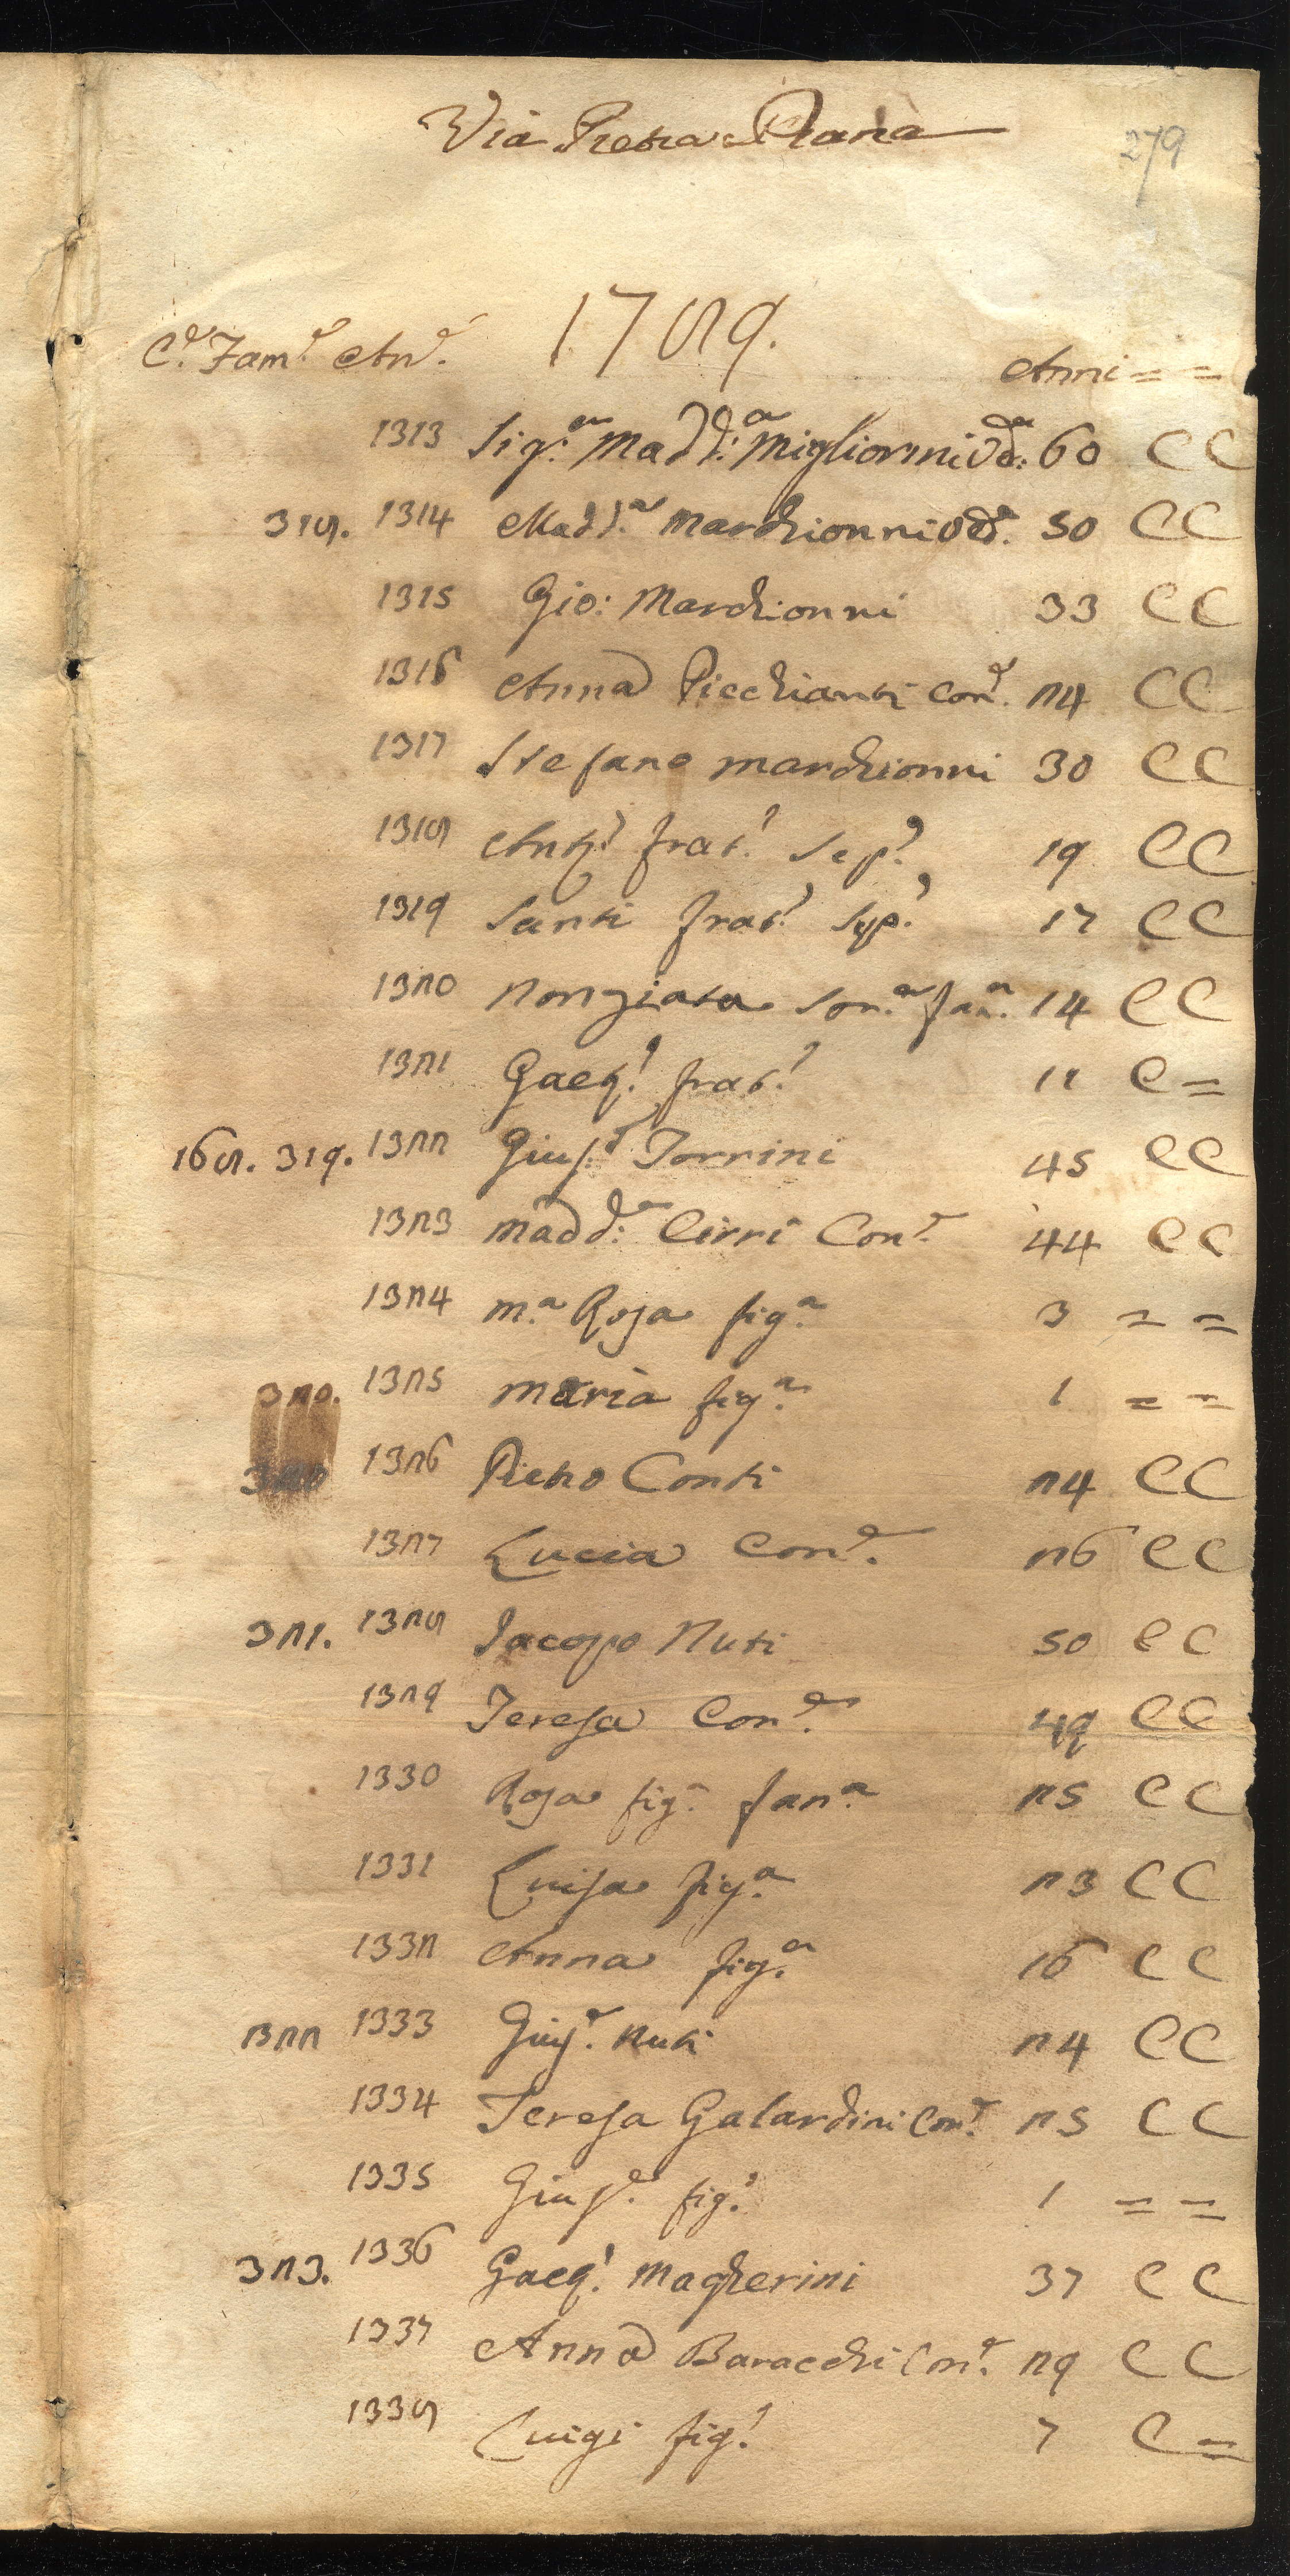 Via Pietra Piana
279
C.e Fam.e An.e 1789. Anni = =
1313 Sig.ra Madd:a Migliorini Vd:a 60 C C
318. 1314 Madd.a Marchionni Ved.a 50 C C
1315 Gio: Marchionni 33 C C
1316 Anna Picchianti Con.e 24 C C
1317 Stefano Marchionni 30 C C
1318 Ant.o frat.o Sep.o 19 C C
1319 Santi frat.o Sep.o 17 C C
1320 Nonziata Sor.a fan.a 14 C C
1321 Gaet.o frat.o 11 C =
168. 319. 1322 Gius.e Torrini 45 C C
1323 Madd:a Cirri Con.e 44 C C
1324 M.a Rosa fig.a 3 = =
320. 1325 Maria fig.a 1 = =
1326 Pietro Conti 24 C C
1327 Lucia Con.e 26 C C
321. 1328 Jacopo Nuti 50 C C
1329 Teresa Con.e 49 C C
1330 Rosa fig.a fan.a 25 C C
1331 Luisa fig.a 23 C C
1332 Anna fig.a 16 C C
322 1333 Gius.e Nuti 24 C C
1334 Teresa Galardini Con.e 25 C C
1335 Gius.e fig.o 1 = =
323. 1336 Gaet.o Magherini 37 C C
1337 Anna Baracchi Con.e 29 C C
1338 Luigi fig.o 7 C =